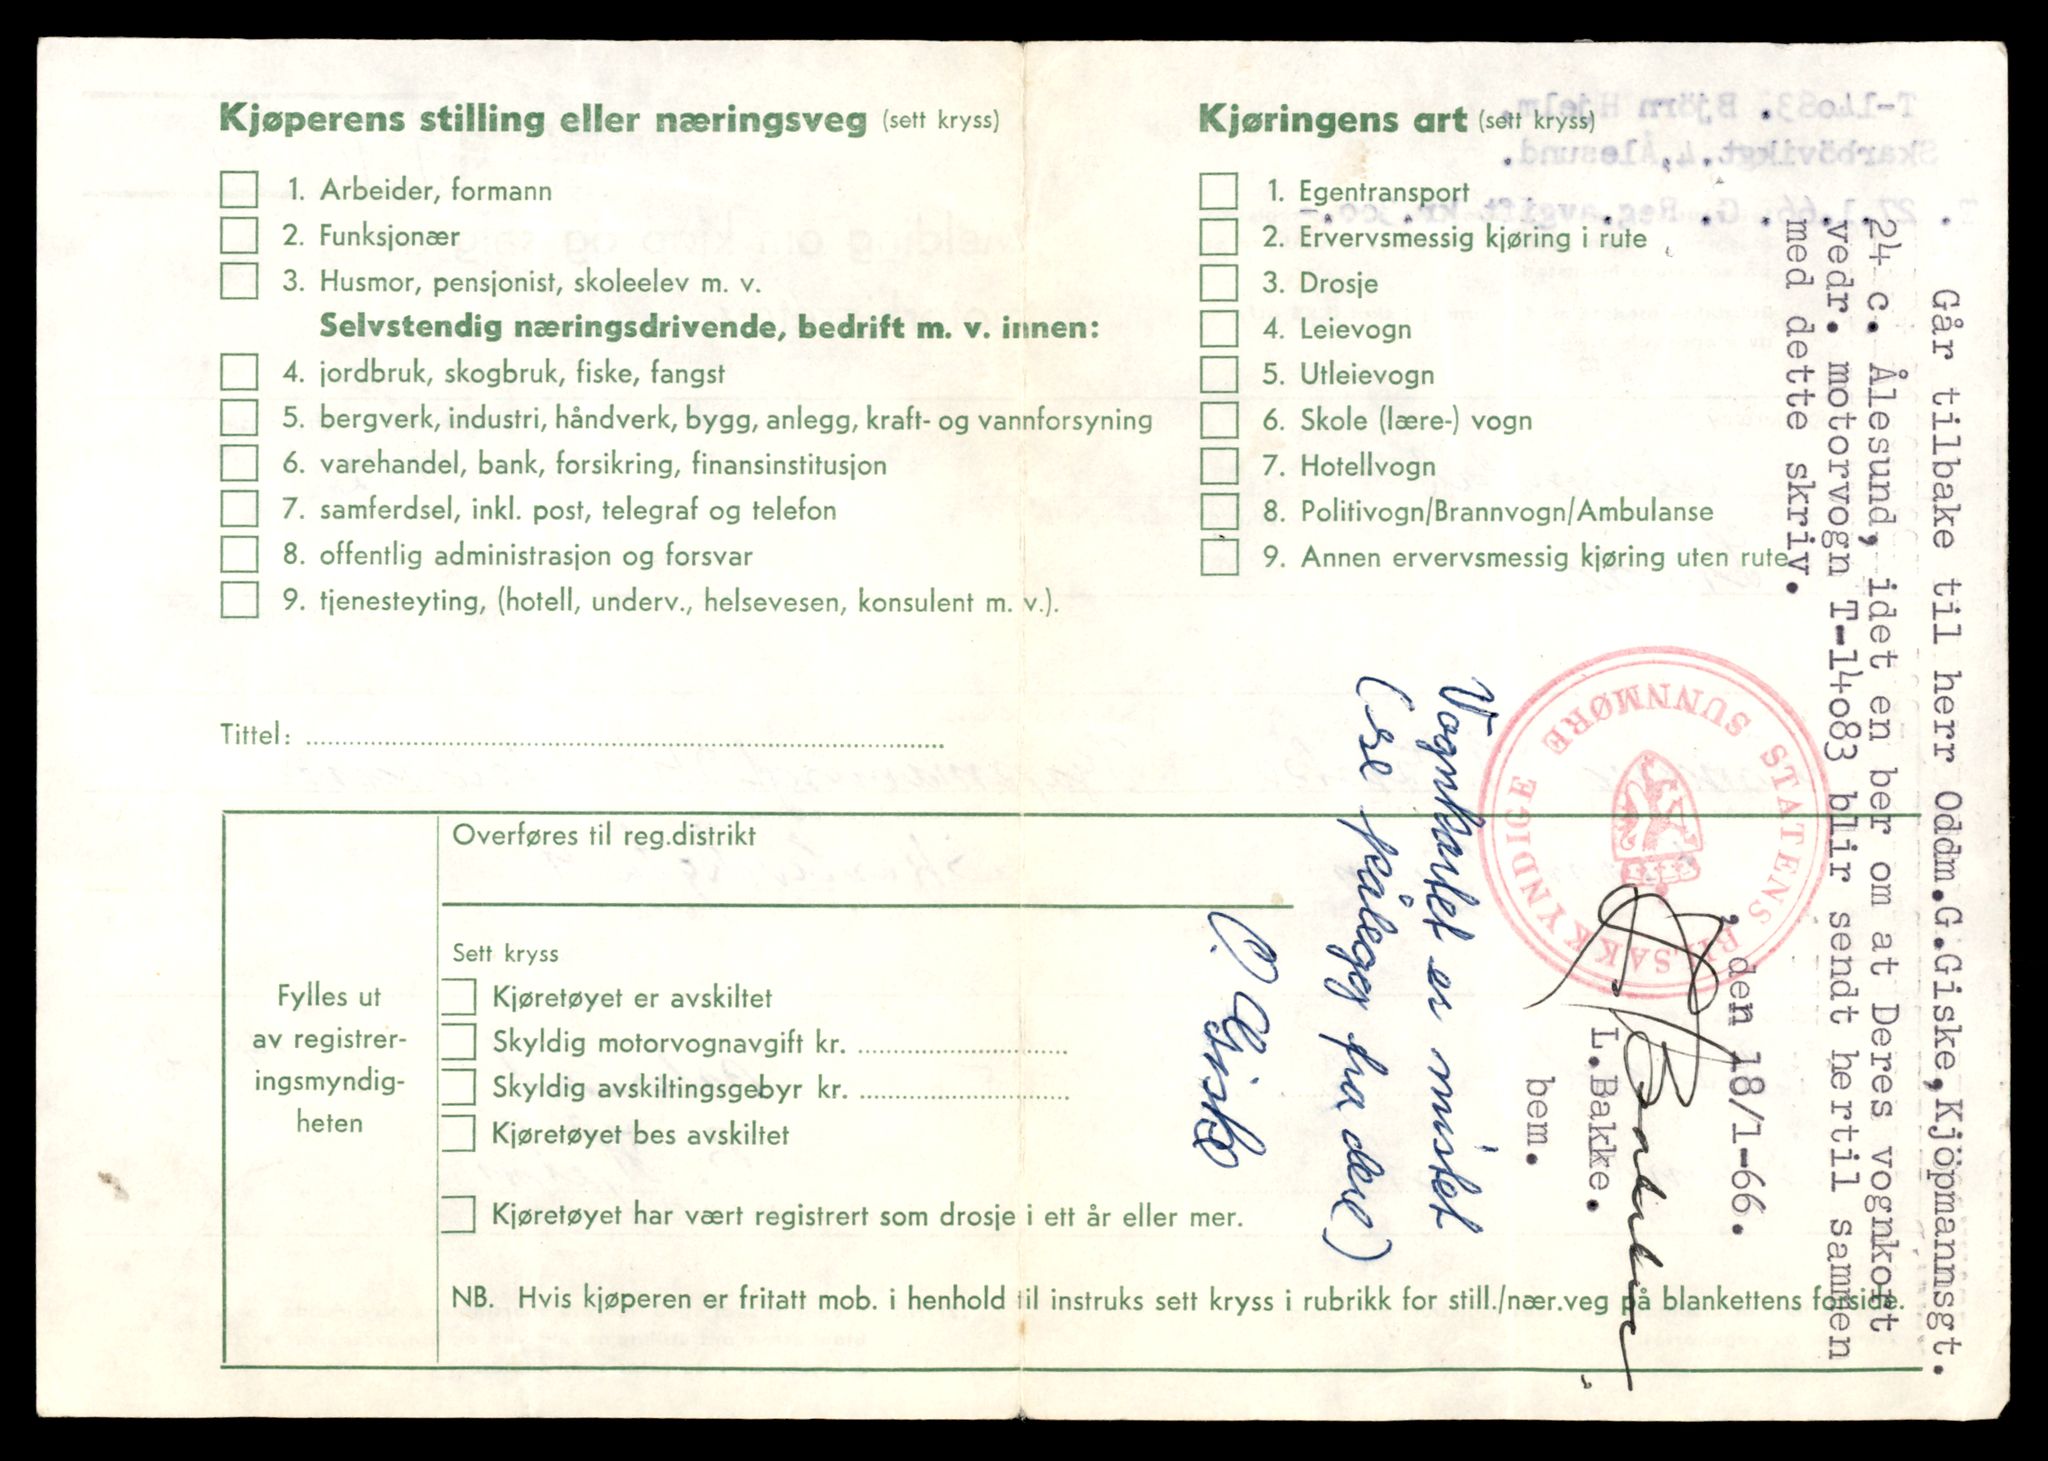 Kjøperens stilling eller næringsveg (sett kryss)
1. Arbeider, formann
2. Funksjonær
3. Husmor, pensjonist, skoleelev m. v.
Selvstendig næringsdrivende, bedrift m. v. innen:
4. jordbruk, skogbruk, fiske, fangst
5. bergverk, industri, håndverk, bygg, anlegg, kraft- og vannforsyning
6. varehandel, bank, forsikring, finansinstitusjon
7. samferdsel, inkl. post, telegraf og telefon
8. offentlig administrasjon og forsvar
9. tjenesteyting, (hotell, underv., helsevesen, konsulent m. v.).
Tittel:
Kjøringens art (sett kryss)
1. Egentransport
2. Ervervsmessig kjøring i rute
3. Drosje
4. Leievogn
5. Utleievogn
6. Skole (lære-) vogn
7. Hotellvogn
8. Politivogn/Brannvogn/Ambulanse
9. Annen ervervsmessig kjøring uten rute
T-14083. Björn Hjelm.
Skarbövikgt.4,Ålesund.
27.1.66. G. Reg.avgift kr.
Fylles ut
av registrer-
ingsmyndig-
heten
Overføres til reg.distrikt
Sett kryss
Kjøretøyet er avskiltet
Skyldig motorvognavgift kr.
Skyldig avskiltingsgebyr kr.
Kjøretøyet bes avskiltet
Kjøretøyet har vært registrert som drosje i ett år eller mer.
NB. Hvis kjøperen er fritatt mob. i henhold til instruks sett kryss i rubrikk for still./nær.veg på blankettens forside.
Går tilbake til herr Oddm.G.Giske,Kjöpmannsgt.
24 c. Ålesund, idet en ber om at Deres vognkort
vedr. motorvogn T-14o83 blir sendt hertil sammen
med dette skriv.
, den 18/1-66.
STATENS BILSAKKYNDIGE
SUNNMØRE
L. Bakke.
bem.
Vognkortet er mistet
(se pålegg fra dere)
O. Giske